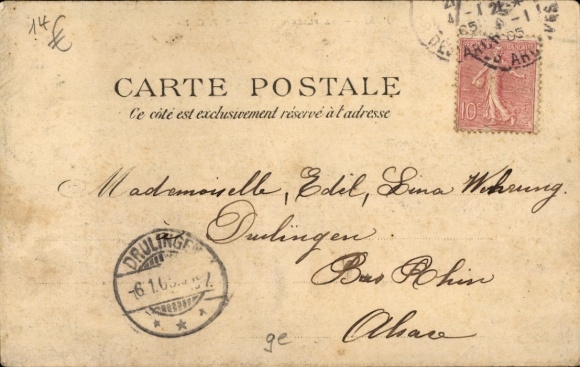 14 €
CARTE POSTALE
Ce côté est exclusivement réservé à l'adresse
10
Mademoiselle, Edil, Lina Wehrung.
à Drulingen
Bas Rhin
Alsace
DRULINGEN
-6.1.05
ge